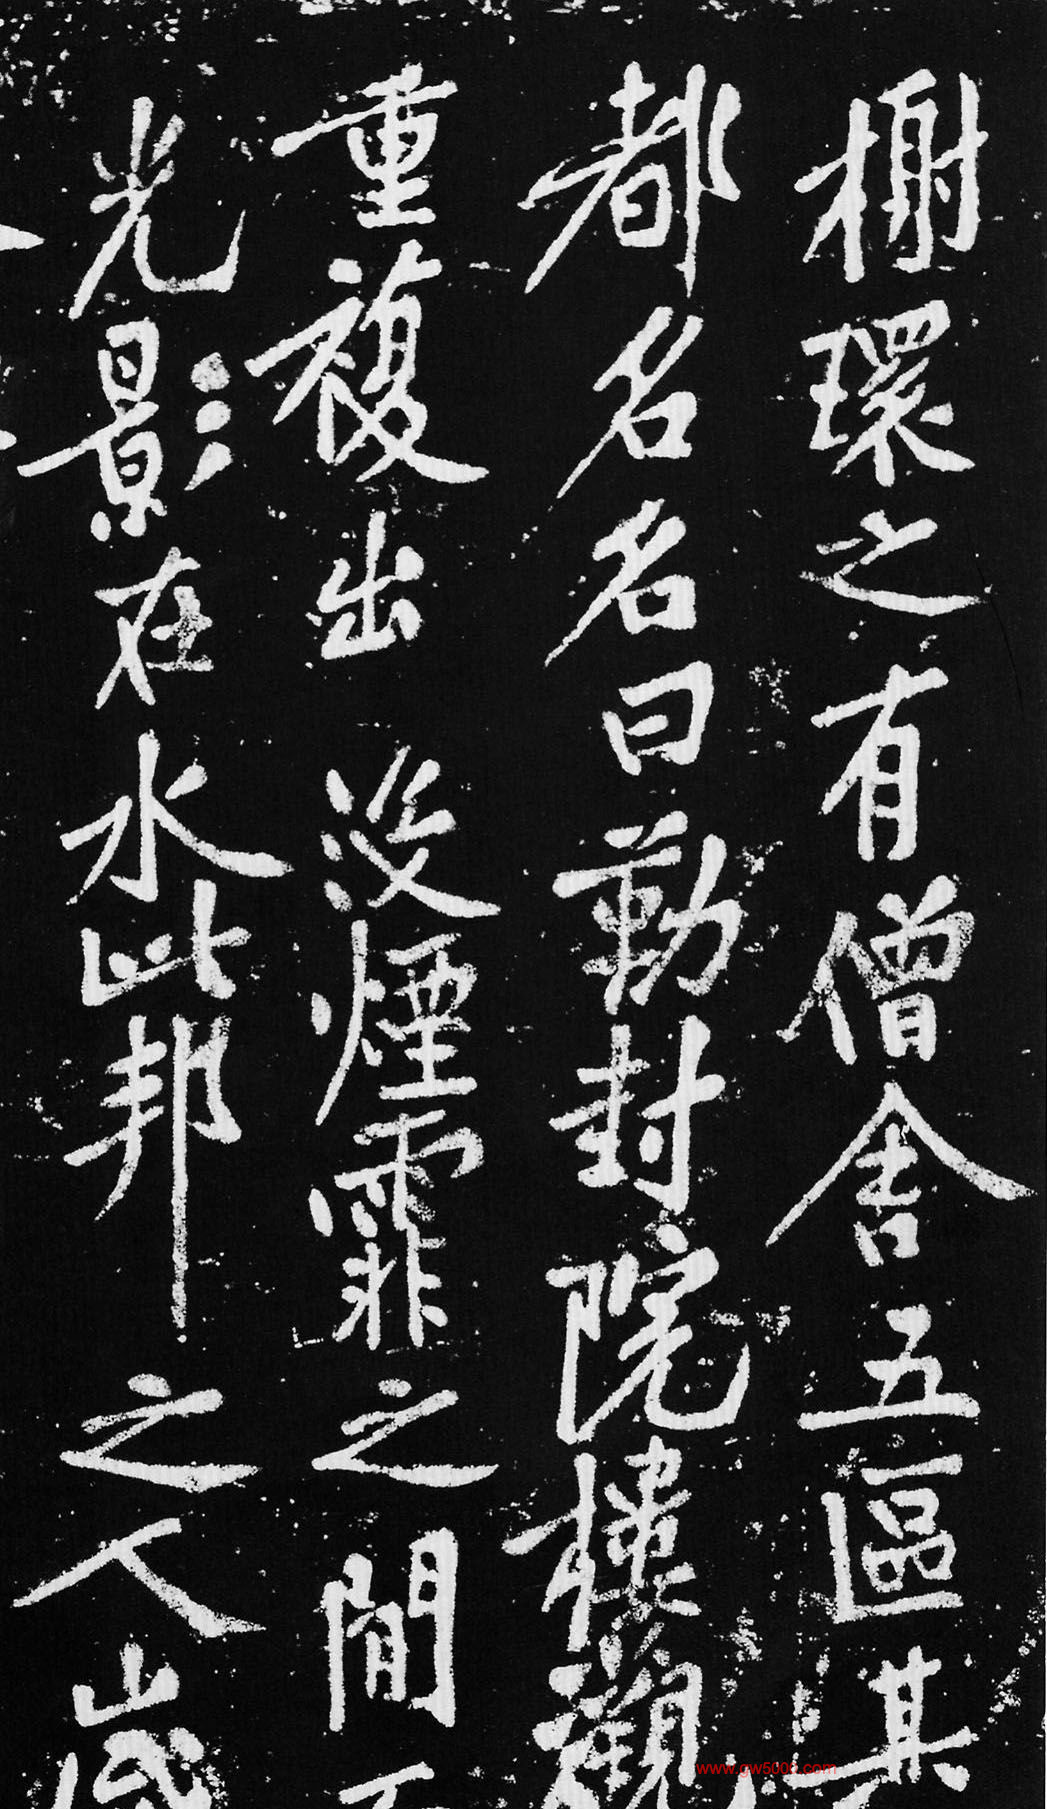 榭環之有僧舍五區其
都名名曰勒封院樓觀
重複出沒煙霏之間而
光影在水此邦之人歲
www.gw5000.com